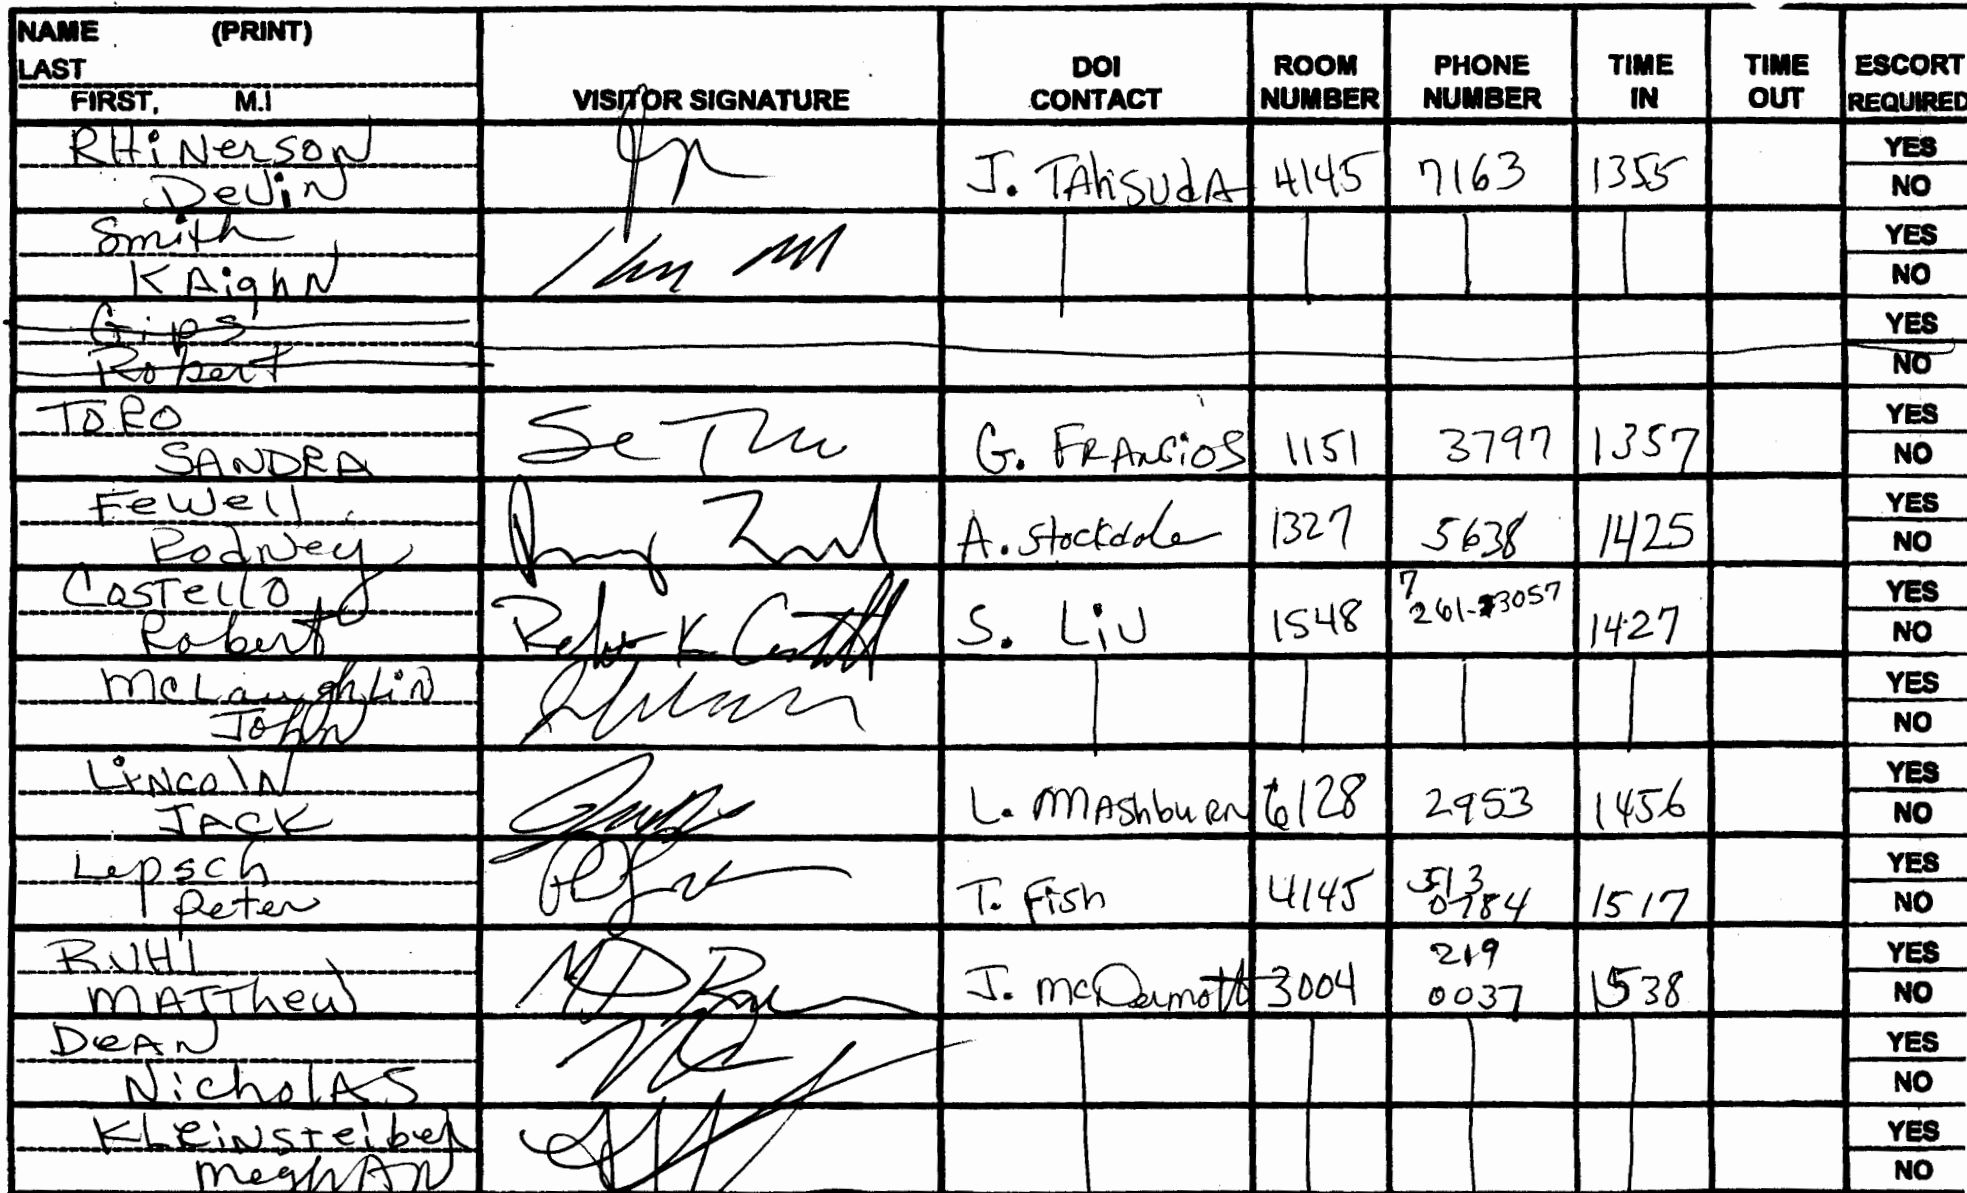 NAME (PRINT)
LAST
FIRST, M.I
VISITOR SIGNATURE
DOI CONTACT
ROOM NUMBER
PHONE NUMBER
TIME IN
TIME OUT
ESCORT REQUIRED
RHiNerson
Devin
J. TAhsudA 4145 7163 1355 YES
NO
Smith
KAighN
YES
NO
Gips
Robert
YES
NO
TORO
SANDRA
G. FRANCiOS 1151 3797 1357 YES
NO
Fewell
Rodney
A. Stockdale 1327 5638 1425 YES
NO
Costello
Robert
S. LiU 1548 1427 YES
NO
McLaughlin
John
YES
NO
LiNcolN
JACK
L. MAShbuRN 6128 2953 1456 YES
NO
Lepsch
Peter
T. Fish 4145 513 0784 1517 YES
NO
RUHL
MATThew
J. McDermott 3004 219 0037 1538 YES
NO
DeAN
NicholAS
YES
NO
KLeiNsteiber
MeghAN
YES
NO